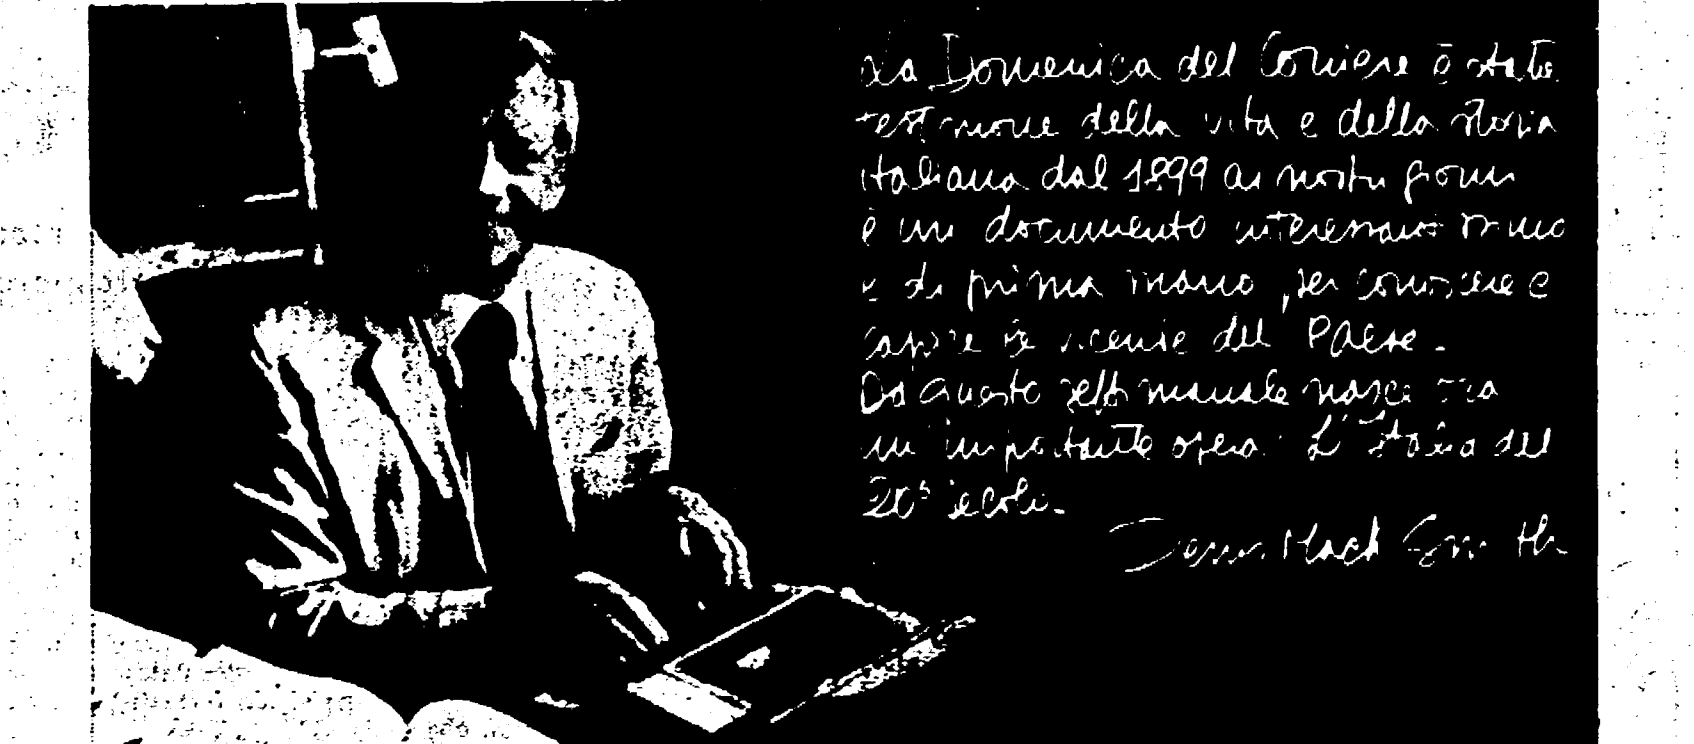 La Domenica del Corriere è stata
testimone della vita e della storia
italiana dal 1899 ai nostri giorni
è un documento interessantissimo
e di prima mano, per conoscere e
capire le vicende del Paese.
Da questo settimanale nasce ora
un'importante opera: L'Italia del
20° secolo.
Denis Mack Smith